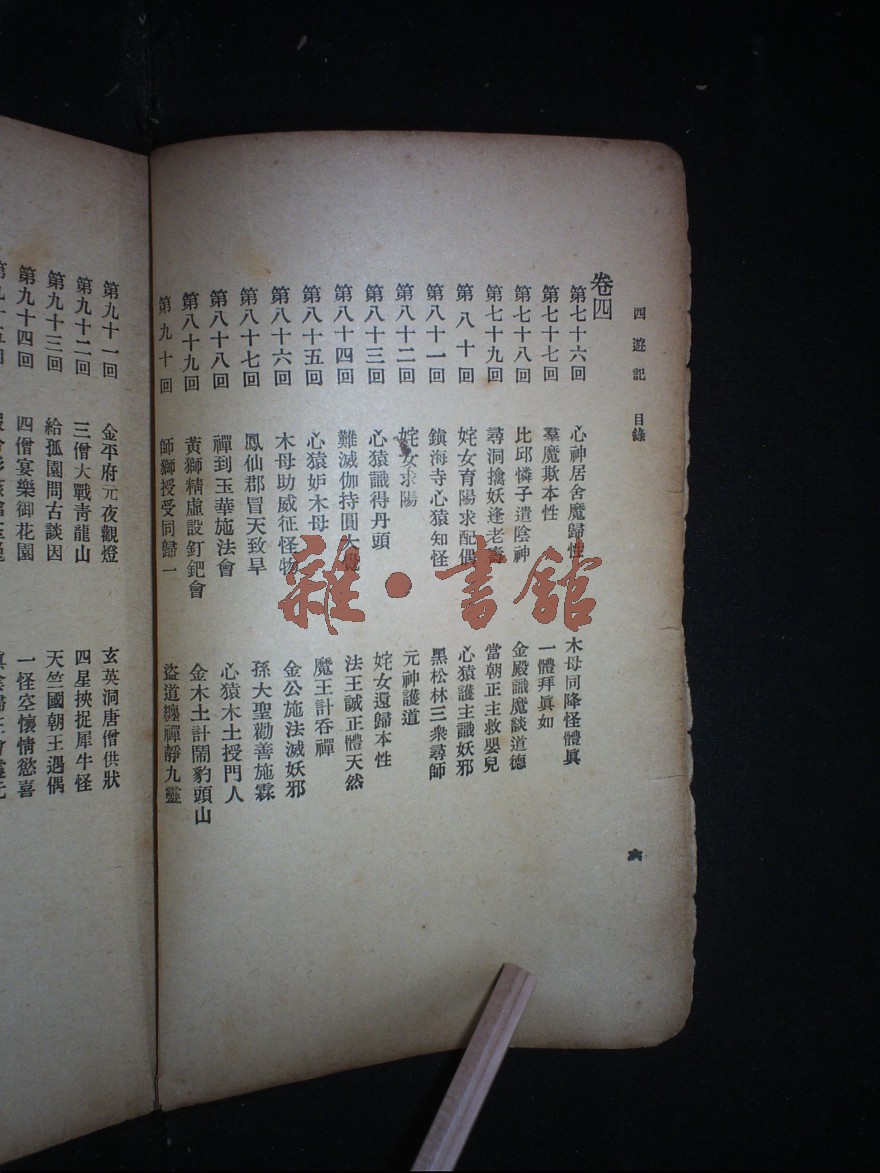 四遊記 目錄
六
卷四
第七十六回 心神居舍魔歸性 木母同降怪體眞
第七十七回 羣魔欺本性 一體拜眞如
第七十八回 比邱憐子遣陰神 金殿識魔談道德
第七十九回 尋洞擒妖逢老壽 當朝正主救嬰兒
第八十回 姹女育陽求配偶 心猿護主識妖邪
第八十一回 鎭海寺心猿知怪 黑松林三衆尋師
第八十二回 姹女求陽 元神護道
第八十三回 心猿識得丹頭 姹女還歸本性
第八十四回 難滅伽持圓大覺 法王誠正體天然
第八十五回 心猿妒木母 魔王計吞禪
第八十六回 木母助威征怪物 金公施法滅妖邪
第八十七回 鳳仙郡冒天致旱 孫大聖勸善施霖
第八十八回 禪到玉華施法會 心猿木土授門人
第八十九回 黃獅精虛設釘鈀會 金木土計鬧豹頭山
第九十回 師獅授受同歸一 盜道纏禪靜九靈
第九十一回 金平府元夜觀燈 玄英洞唐僧供狀
第九十二回 三僧大戰靑龍山 四星挾捉犀牛怪
第九十三回 給孤園問古談因 天竺國朝王遇偶
第九十四回 四僧宴樂御花園 一怪空懷情慾喜
雜·書館